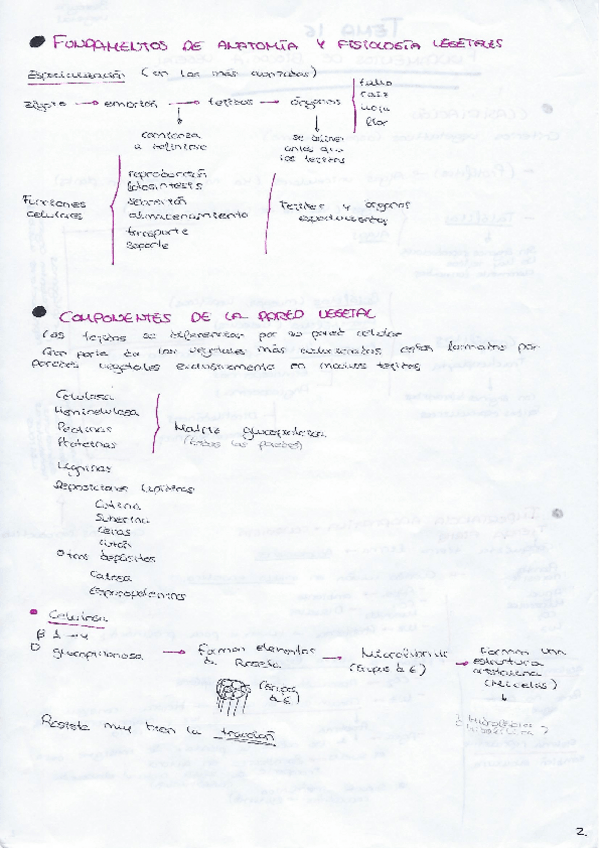 FUNDAMENTOS DE ANATOMÍA Y FISIOLOGÍA VEGETALES
Especialización (en los más avanzados)
zigoto → embrión → tejidos → órganos
tallo
raíz
hoja
flor
comienza a definirse
se definen antes que los tejidos
Funciones celulares
reproducción
fotosíntesis
secreción
almacenamiento
transporte
soporte
Tejidos y órganos
COMPONENTES DE LA PARED VEGETAL
Los tejidos se diferencian por su pared celular
Gran parte de los vegetales más evolucionados están formados por
paredes vegetales exclusivamente en muchos tejidos
Celulosa
Hemicelulosa
Pectinas
Proteínas
Matriz glucoproteica
(todas las paredes)
Ligninas
Deposiciones lipídicas
Cutina
Suberina
Ceras
Cután
Otros depósitos
Calosa
Esporopolenina
Celulosa
β 1→4
D glucopiranosa → Forman elementos de Roseta → Microfibrillas (Grupos de 6) → Forman una estructura cristalina (Micelas)
(Grupos de 6)
Resiste muy bien la tracción
2.